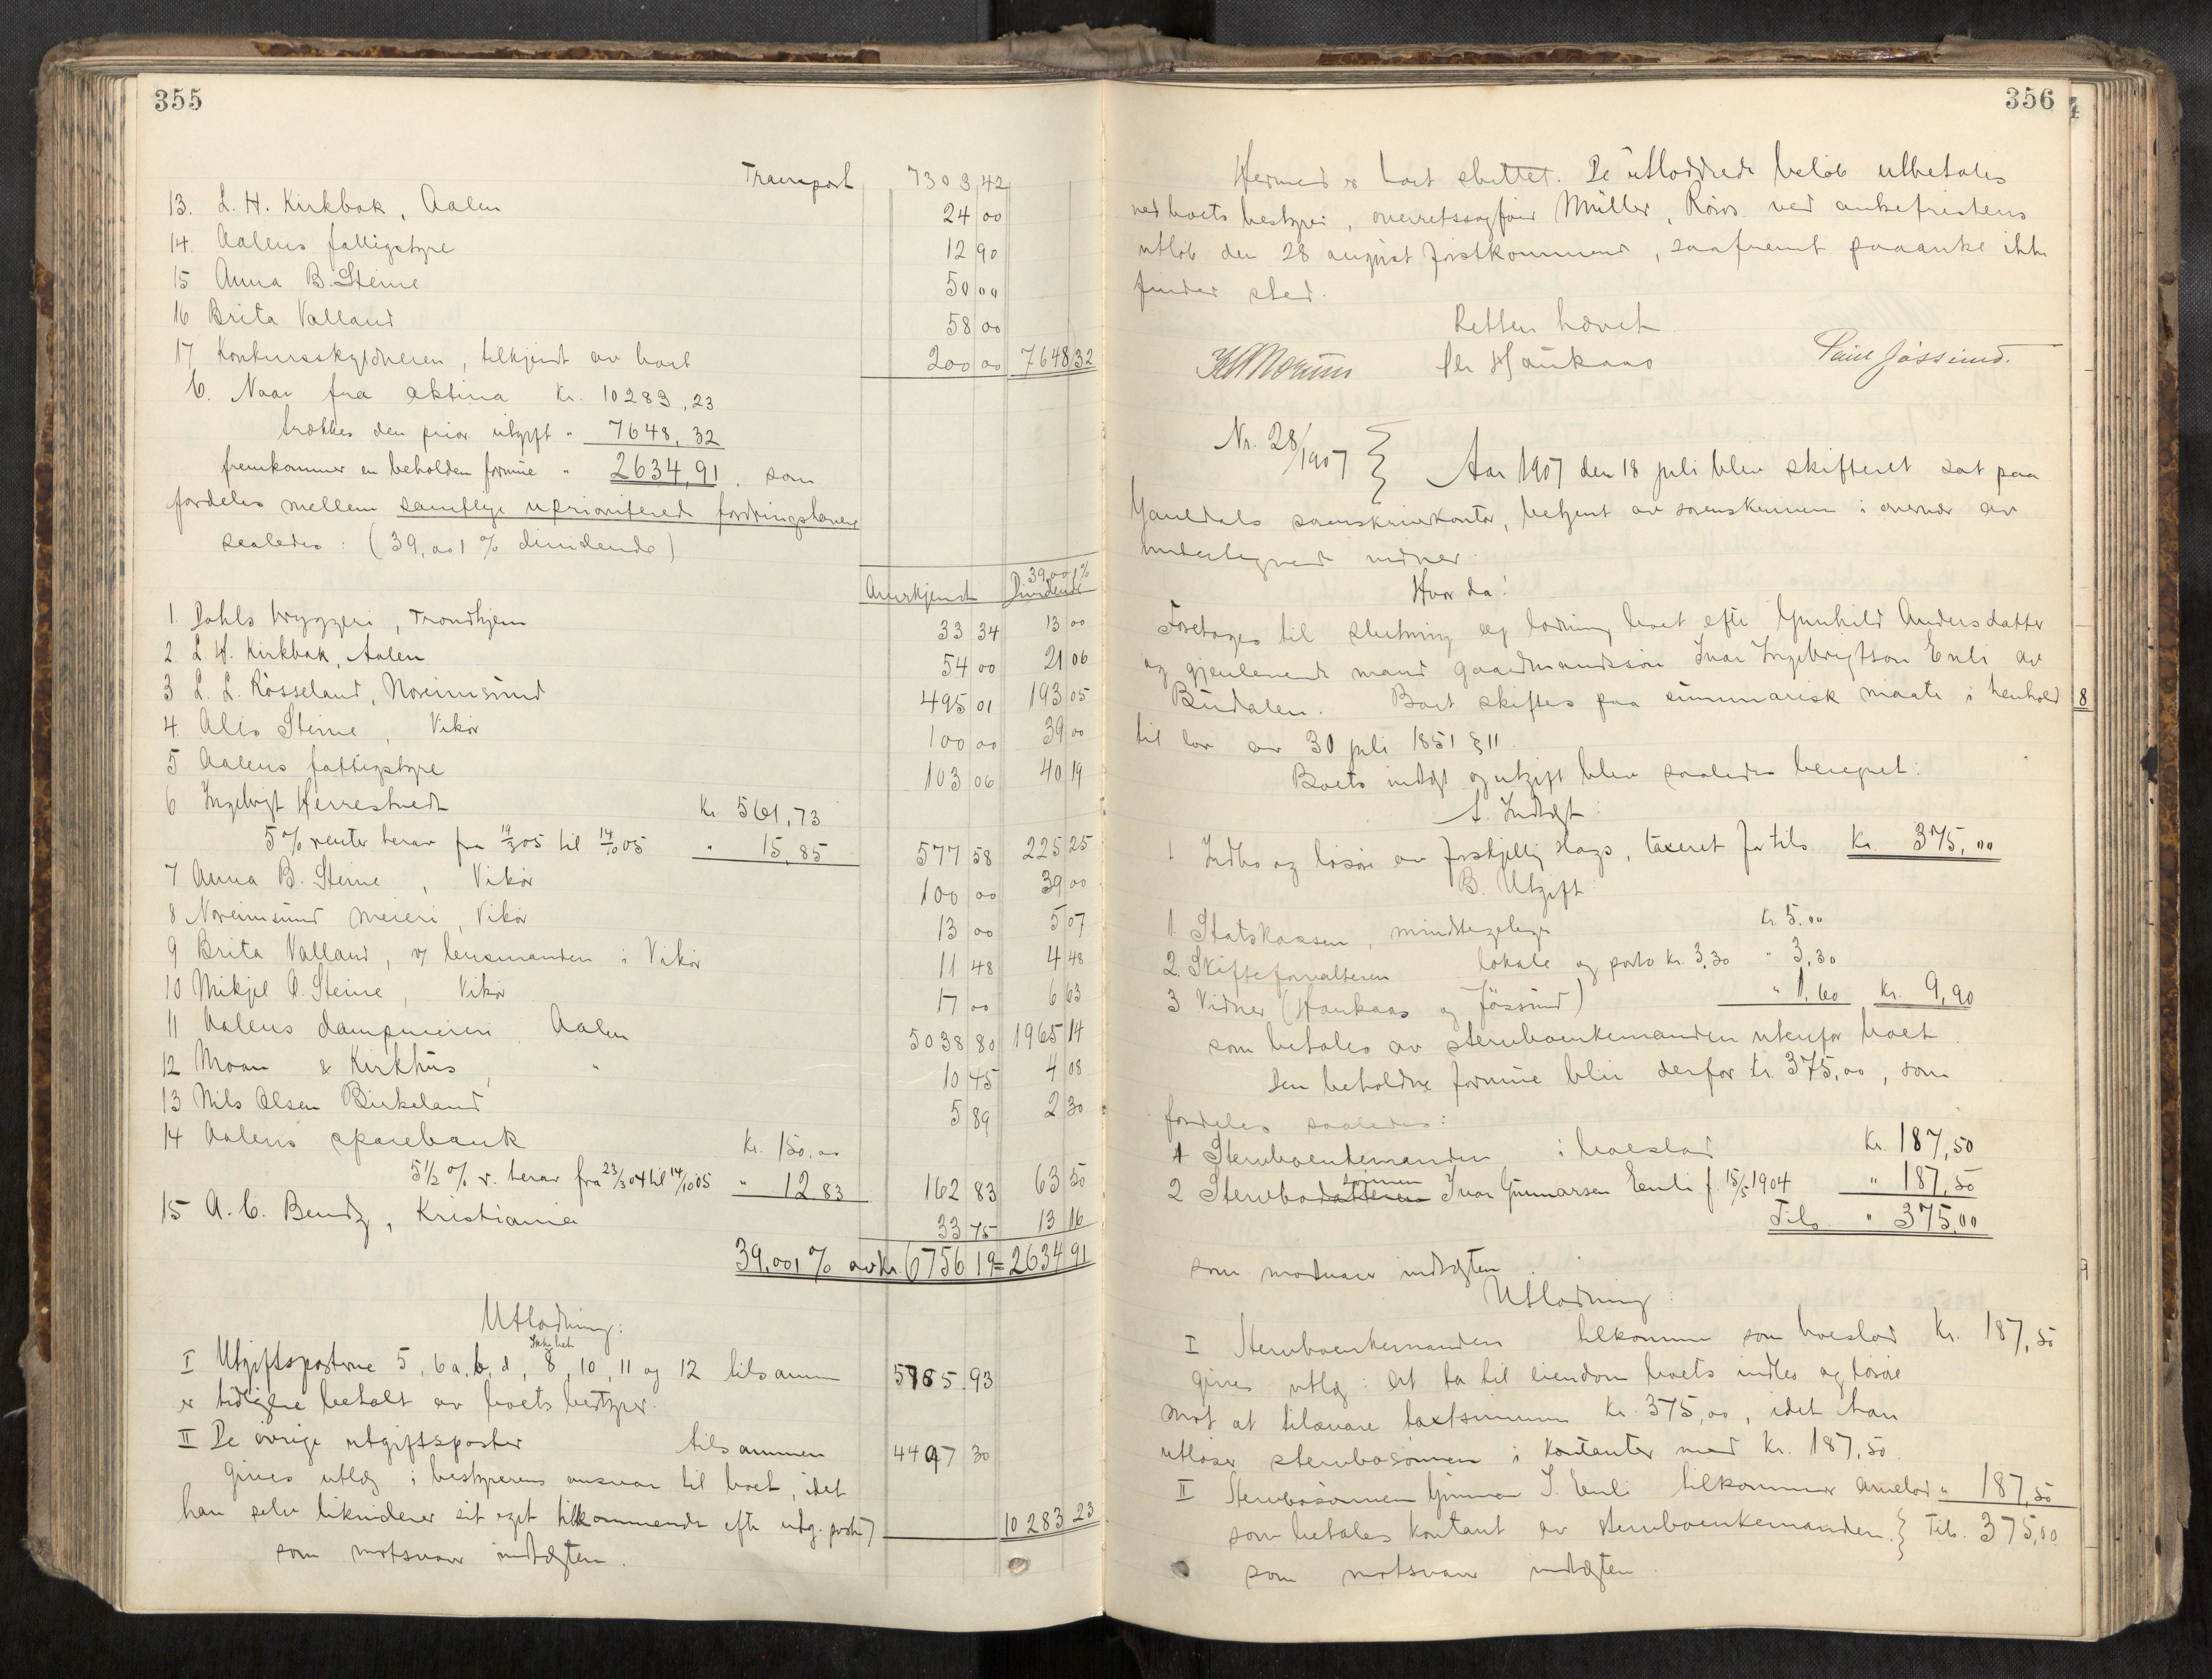 355
Transport 7303,42
13. L. H. Kirkbak, Aalen 24 00
14. Aalens fattigstyre 12 90
15 Anna B. Steine 50 00
16 Brita Valland 58 00
17 Konkursskyldneren, tilkjendt av boet 200 00 7648 32
C. Naar fra aktiva Kr. 10283,23
trækkes den prior. utgift " 7648,32
fremkommer en beholden formue " 2634,91. som
fordeles mellem samtlige uprioriterede fordringshavere
saaledes: (39,001 % dividende)
Anerkjendt 39,001% Dividende
1. Dahls bryggeri, Trondhjem 33 34 13 00
2 L. H. Kirkbak, Aalen 54 00 21 06
3 L. L. Rösseland, Noreimsund 495 01 193 05
4. Alis Steine, Vikör 100 00 39 00
5 Aalens fattigstyre 103 06 40 19
6 Ingebrigt Herrestvedt Kr. 561,73
5 % renter herav fra 19/3 05 til 14/10 05 " 15,85 577 58 225 25
7 Anna B. Steine, Vikör 100 00 39 00
8 Noreimsund meieri, Vikör 13 00 5 07
9 Brita Valland, v/ lensmanden i Vikör 11 48 4 48
10 Mikjel O. Steine, Vikör 17 00 6 63
11 Aalens dampmeieri, Aalen 5038 80 1965 14
12 Moan & Kirkhus, " 10 45 4 08
13 Nils Olsen Birkeland 5 89 2 30
14 Aalens sparebank Kr. 150,00
5½ % r. herav fra 23/3 04 til 14/10 05 " 12 83 162 83 63 50
15 A. C. Bendz, Kristiania 33 75 13 16
39,001 % av kr. 6756 19 = 2634 91
Utlodning:
I Utgiftsposterne 5, 6 a, b, d, 8, 10, 11 og 12 tilsamm 5785.93
er tidligere betalt av boets bestyrer.
II De övrige utgiftsposter tilsammen 4497 30
gives utlæg i bestyrerens ansvar til boet, idet
han selv likviderer sit eget tilkommende efter utg. post 7 10283 23
som motsvarer indtægten.
356
Hermed er boet sluttet. De utloddede beløb utbetales
ved boets bestyrer, overretssagfører Müller, Röros ved ankefristens
utløb den 28 august førstkommende, saafremt paaanke ikke
finder sted.
Retten hævet
Per Haukaas Paul Jøssund.
Nr. 28/1907 } Aar 1907 den 18 juli blev skifteret sat paa
Gauldals sorenskriverkontor, betjent av sorenskriveren i overvær av
undertegnede vidner.
Hvor da:
Foretages til slutning og lodning boet efter Gunhild Andersdatter
og gjenlevende mand gaardmandssøn Ivar Ingebrigtson Enli av
Budalen. Boet skiftes paa summarisk maate i henhold
til lov av 30 juli 1851 § 11.
Boets indtægt og utgift blev saaledes beregnet:
A. Indtægt:
1 Indbo og løsøre av forskjellig slags, taxeret for tils. Kr. 375,00
B. Utgift:
1. Statskassen, mindstegebyr Kr. 5.00
2. Skifteforvalteren lokale og porto Kr. 3,30 " 3,30
3 Vidner (Haukaas og Jøssund) " 1,60 Kr. 9,90
som betales av stervboenkemanden utenfor boet.
Den beholdne formue blir derfor kr. 375,00, som
fordeles saaledes:
1 Stervboenkemanden i boeslod Kr 187,50
2 Sterbodatteren sönnen Ivar Gunnarsen Enli f. 15/5 1904 " 187,50
Tils. " 375,00
som motsvarer indtægten.
Utlodning:
I Stervboenkemanden tilkommer som boeslod Kr. 187,50
gives utlæg: At ta til eiendom boets indbo og løsøre
mot at tilsvare taxtsummen Kr. 375,00, idet han
utløser stervbosønnen i kontanter med Kr. 187,50.
II Sterbosønnen Gunnar I. Enli tilkommer arvelod " 187,50
som betales kontant av stervboenkemanden. } Tils. 375,00
som motsvarer indtægten.